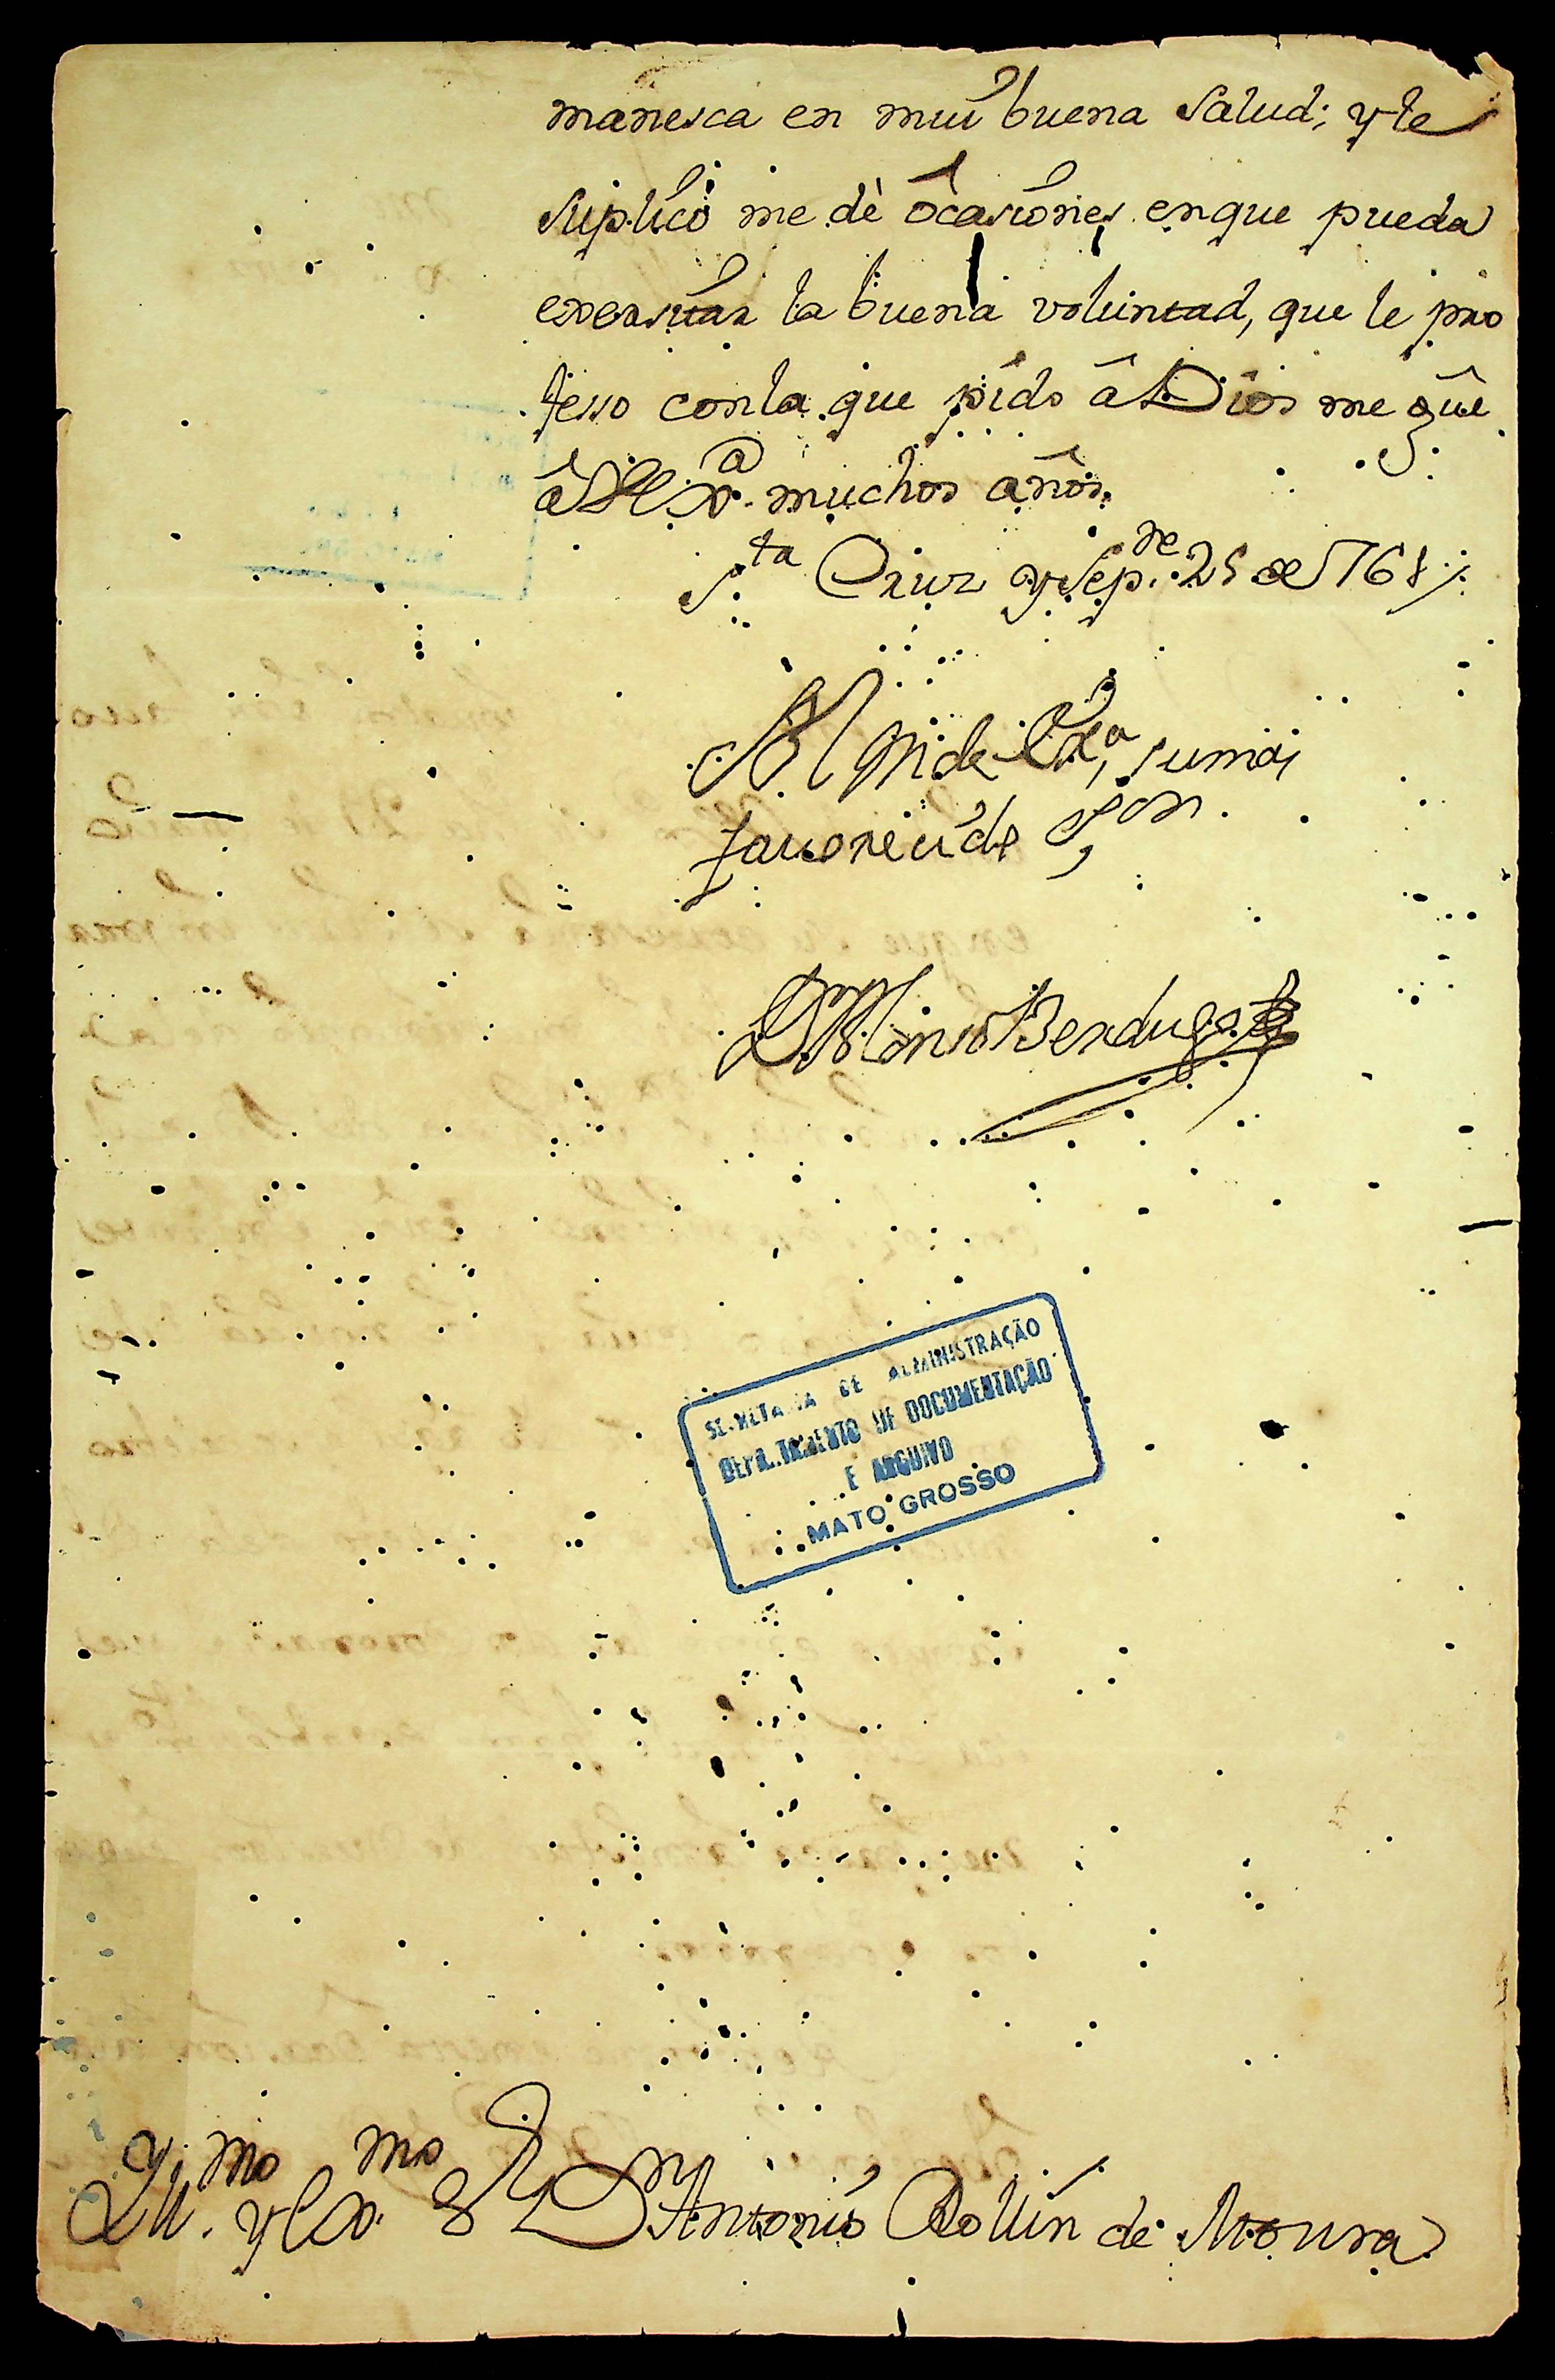 manesca en mui buena Salud; y le
suplico me dè ôcasiones enque pueda
exersitar la buena voluntad, que le pro
fesso conla que pido â Dios me gûe
â V. Ex.ª muchos años.
S.ta Cruz y Sep.re 25 de 1761
B l M de V. Ex.ª, su mas
favorecido S.or
D.n Alonso Berdugo
SECRETARIA DE ADMINISTRAÇÃO
DEPARTAMENTO DE DOCUMENTAÇÃO
E ARQUIVO
MATO GROSSO
Yll.mo y Ex.mo S.r D.n Antonio Rollin de Moura